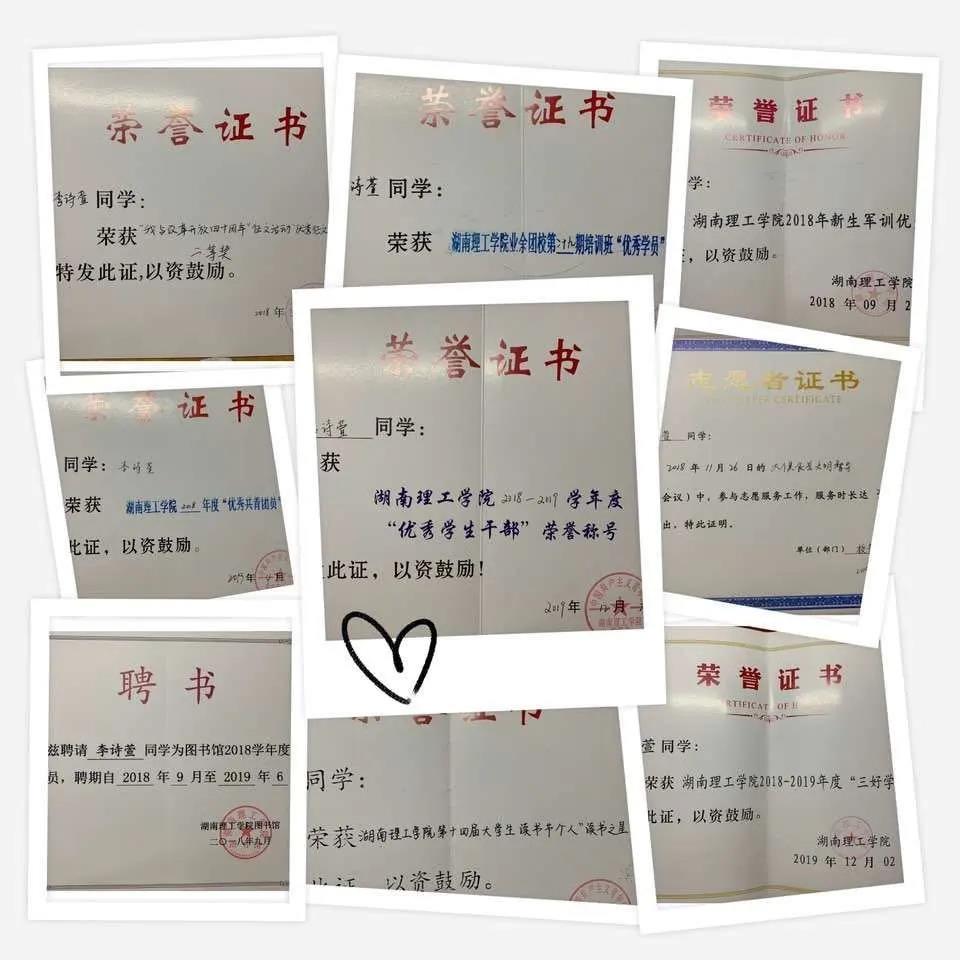 荣誉证书
李诗萱 同学：
荣获"我与改革开放四十周年"征文活动"优秀征文
二等奖
特发此证,以资鼓励。
2018 年
荣誉证书
诗萱 同学：
荣获 湖南理工学院业余团校第二十九期培训班"优秀学员"
荣誉证书
CERTIFICATE OF HONOR
学：
湖南理工学院2018年新生军训优
，以资鼓励。
湖南理工学院
2018 年 09 月 2
荣誉证书
同学：李诗萱
荣获 湖南理工学院 2018 年度"优秀共青团员"
此证，以资鼓励。
2019年 4月
荣誉证书
诗萱 同学：
获
湖南理工学院 2018-2019 学年度
"优秀学生干部" 荣誉称号
此证，以资鼓励！
2019年 12月
志愿者证书
CERTIFICATE
萱 同学：
2018 年 11月 26 日的
会议）中，参与志愿服务工作，服务时长达
出，特此证明。
单位（部门）
聘书
兹聘请 李诗萱 同学为图书馆2018学年度
员，聘期自 2018 年 9 月至 2019 年 6
湖南理工学院图书馆
二〇一八年九月
荣誉证书
同学：
荣获 湖南理工学院第十四届大学生读书千个人"读书之星
此证，以资鼓励。
荣誉证书
CERTIFICATE OF HONOR
萱 同学：
荣获 湖南理工学院2018-2019年度"三好学
此证，以资鼓励。
湖南理工学院
2019 年 12 月 02